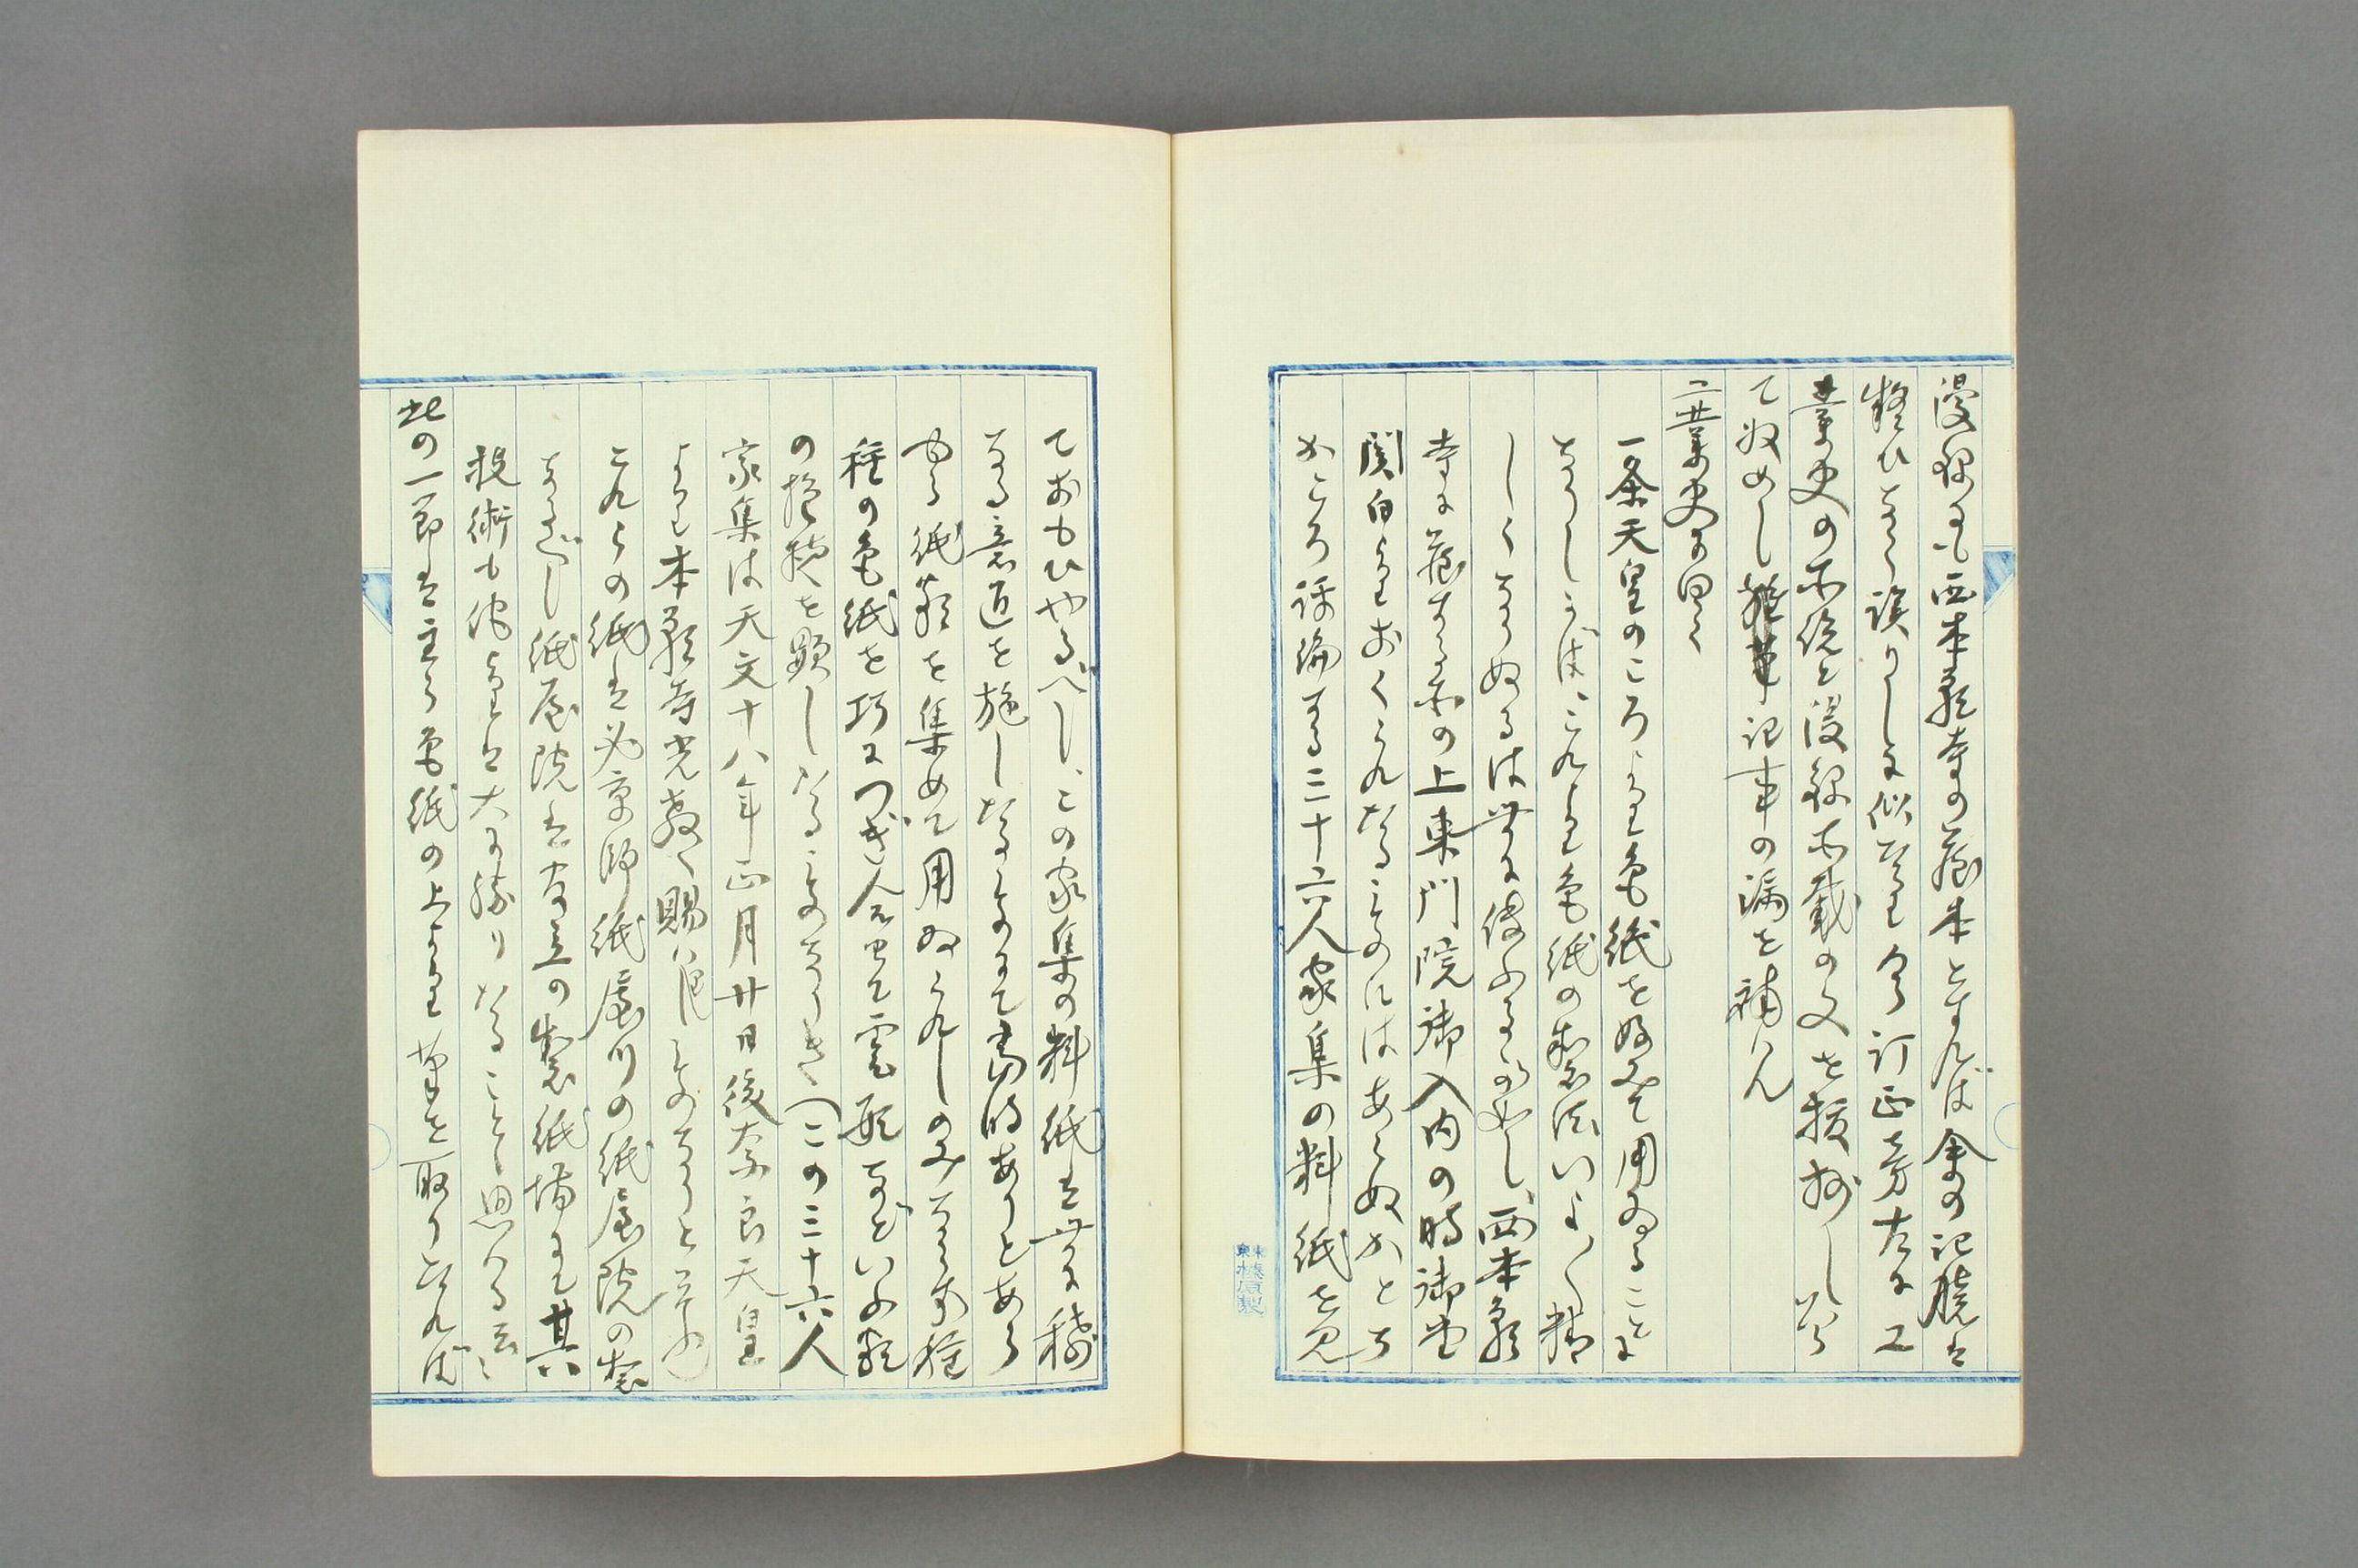 漫録にも西本願寺の蔵本とすれば余の記臆は
聯ひなく誤りしに似たり今訂正旁左に工
業史の所説と漫録所載の文を抜抄し以
て収めし雑筆記事の漏を補はん
工業史に曰く
一条天皇のころより色紙を好みて用ゐること
なりしかば、これより色紙の製法いよ〱精
しくなりぬるは世に伝ふるが如し、西本願
寺に蔵する所の上東門院御入内の時御堂
関白よりおくられたるものにはあらぬかとち
かごろ評論する三十六人家集の料紙を見
ておもひやるべし、この家集の料紙は世に稀
なる意匠を施したるものにて書時ありとあら
ゆる紙類を集めて用ゐられしのみならず種
種の色紙を巧につぎ合せて雲形などいふ類
の模様を顕したるものなりき（この三十六人
家集は天文十八年正月廿日後奈良天皇
より本願寺光教へ賜はりしものなりと云ふ）
これらの紙は必京師紙屋川の紙屋院の製
なるべし紙屋院は官立の製紙場にて其
技術も他よりは大に勝りたることと思はる云々
此の一節は主ら色紙の上より筆を取りたれば
東京榛原製